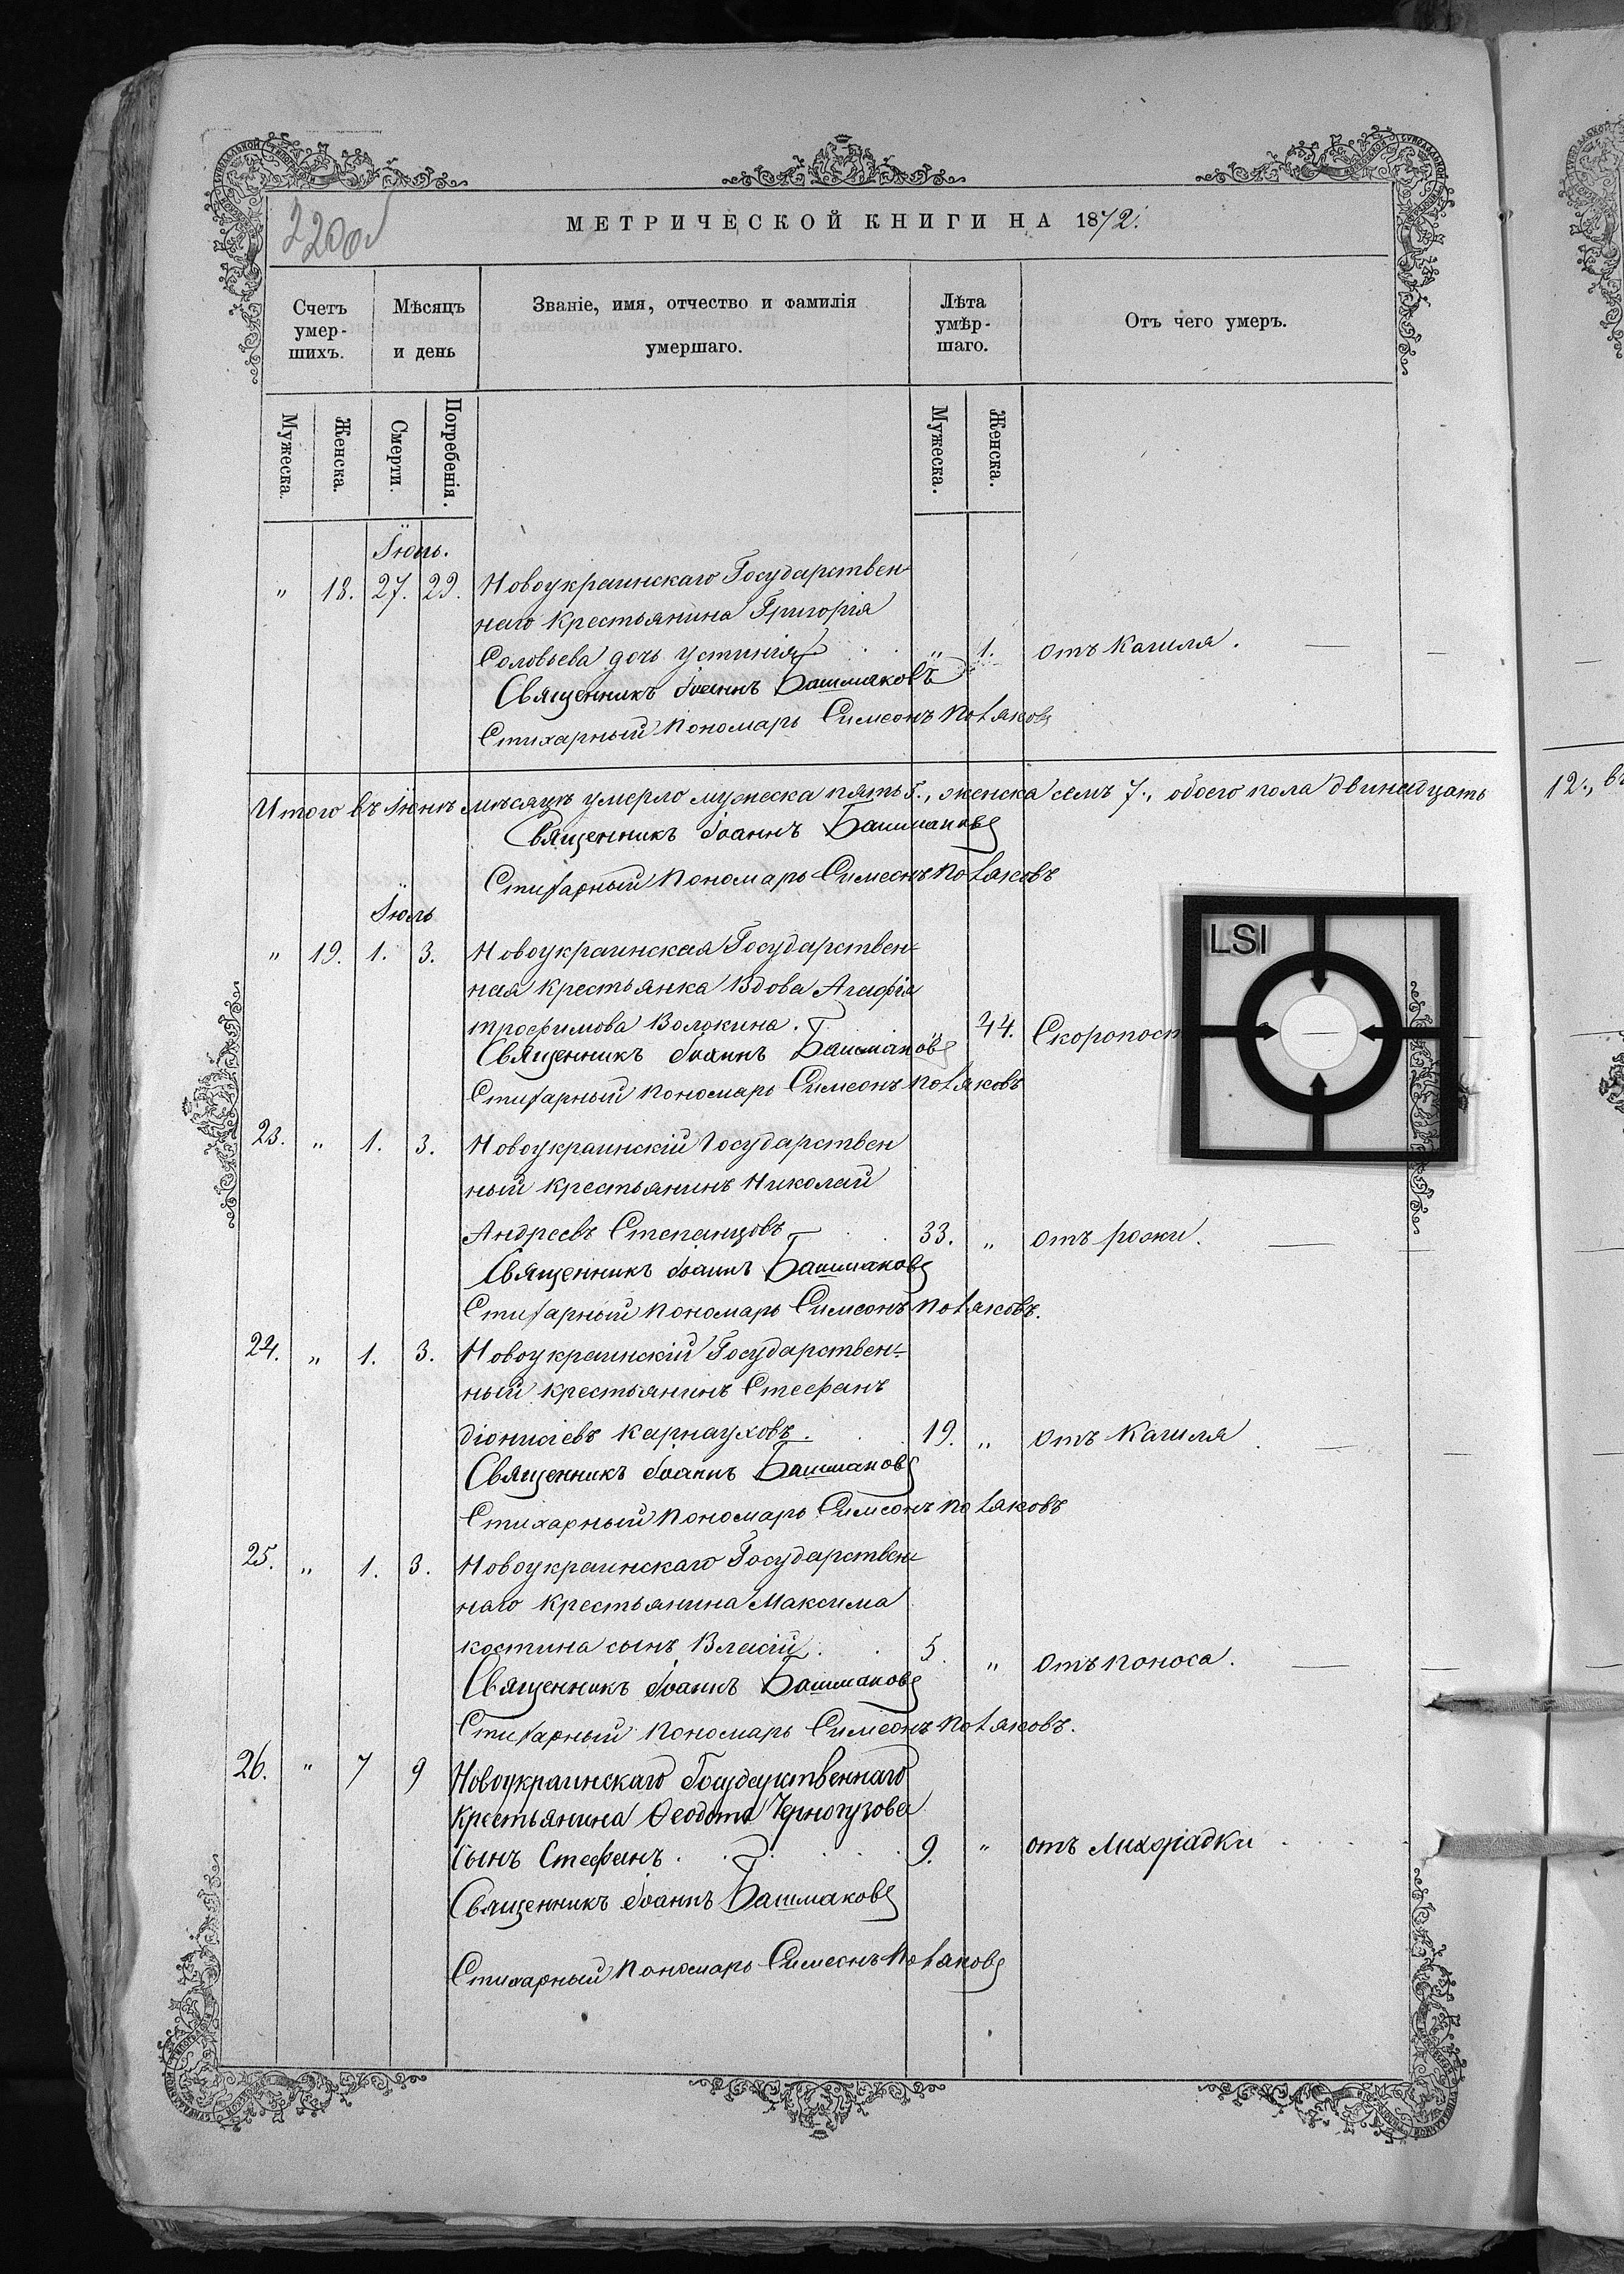 МЕТРИЧЕСКОЙ КНИГИ НА 1872.
Счетъ умер-шихъ. Мѣсяцъ и день Званіе, имя, отчество и фамилія умершаго. Лѣта умѣр-шаго. Отъ чего умеръ.
Мужеска. Женска. Смерти. Погребенія. Мужеска. Женска.
Іюнь.
" 18. 27. 29. Новоукраинскаго Государствен-
наго крестьянина Григорія
Соловьева дочь Устинія " 1. отъ Кашля.
Священникъ Іоаннъ Башмаковъ
Стихарный Пономарь Симеонъ Поляковъ
Итого въ Іюнѣ мѣсяцѣ умерло мужеска пять 5., женска семъ 7., обоего пола двинадцать 12., въ
Священникъ Іоаннъ Башмаковъ
Стихарный Пономарь Симеонъ Поляковъ
Іюль
" 19. 1. 3. Новоукраинская Государствен-
ная крестьянка Вдова Агафія
Трофимова Волокина. " 44. Скоропост
Священникъ Іоаннъ Башмаковъ
Стихарный Пономарь Симеонъ Поляковъ
23. " 1. 3. Новоукраинскій Государствен
ный крестьянинъ Николай
Андреевъ Степанцовъ 33. " отъ рожи.
Священникъ Іоаннъ Башмаковъ
Стихарный Пономарь Симеонъ Поляковъ.
24. " 1. 3. Новоукраинскій Государствен-
ный крестьянинъ Стефанъ
Діонисіевъ Карнауховъ. 19. " отъ Кашля
Священникъ Іоаннъ Башмаковъ
Стихарный Пономарь Симеонъ Поляковъ
25. " 1. 3. Новоукраинскаго Государствен-
наго крестьянина Максима
Костина сынъ Власій. 5. " отъ поноса.
Священникъ Іоаннъ Башмаковъ
Стихарный Пономарь Симеонъ Поляковъ.
26. " 7 9 Новоукраинскаго Государственнаго
Крестьянина Ѳеодота Черногузова
Сынъ Стефанъ. 9. " отъ Лихорадки
Священникъ Іоаннъ Башмаковъ
Стихарный Пономарь Симеонъ Поляковъ
LSI